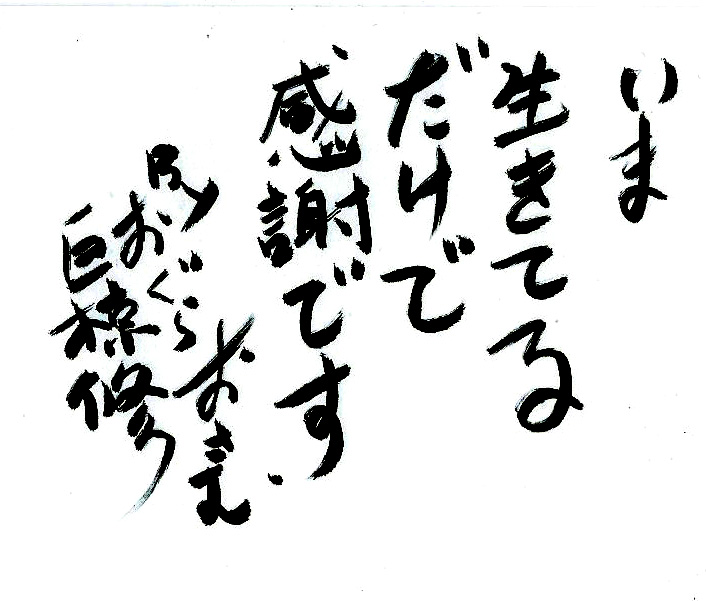 いま
生きてる
だけで
感謝です
おぐら おさむ
巨椋修